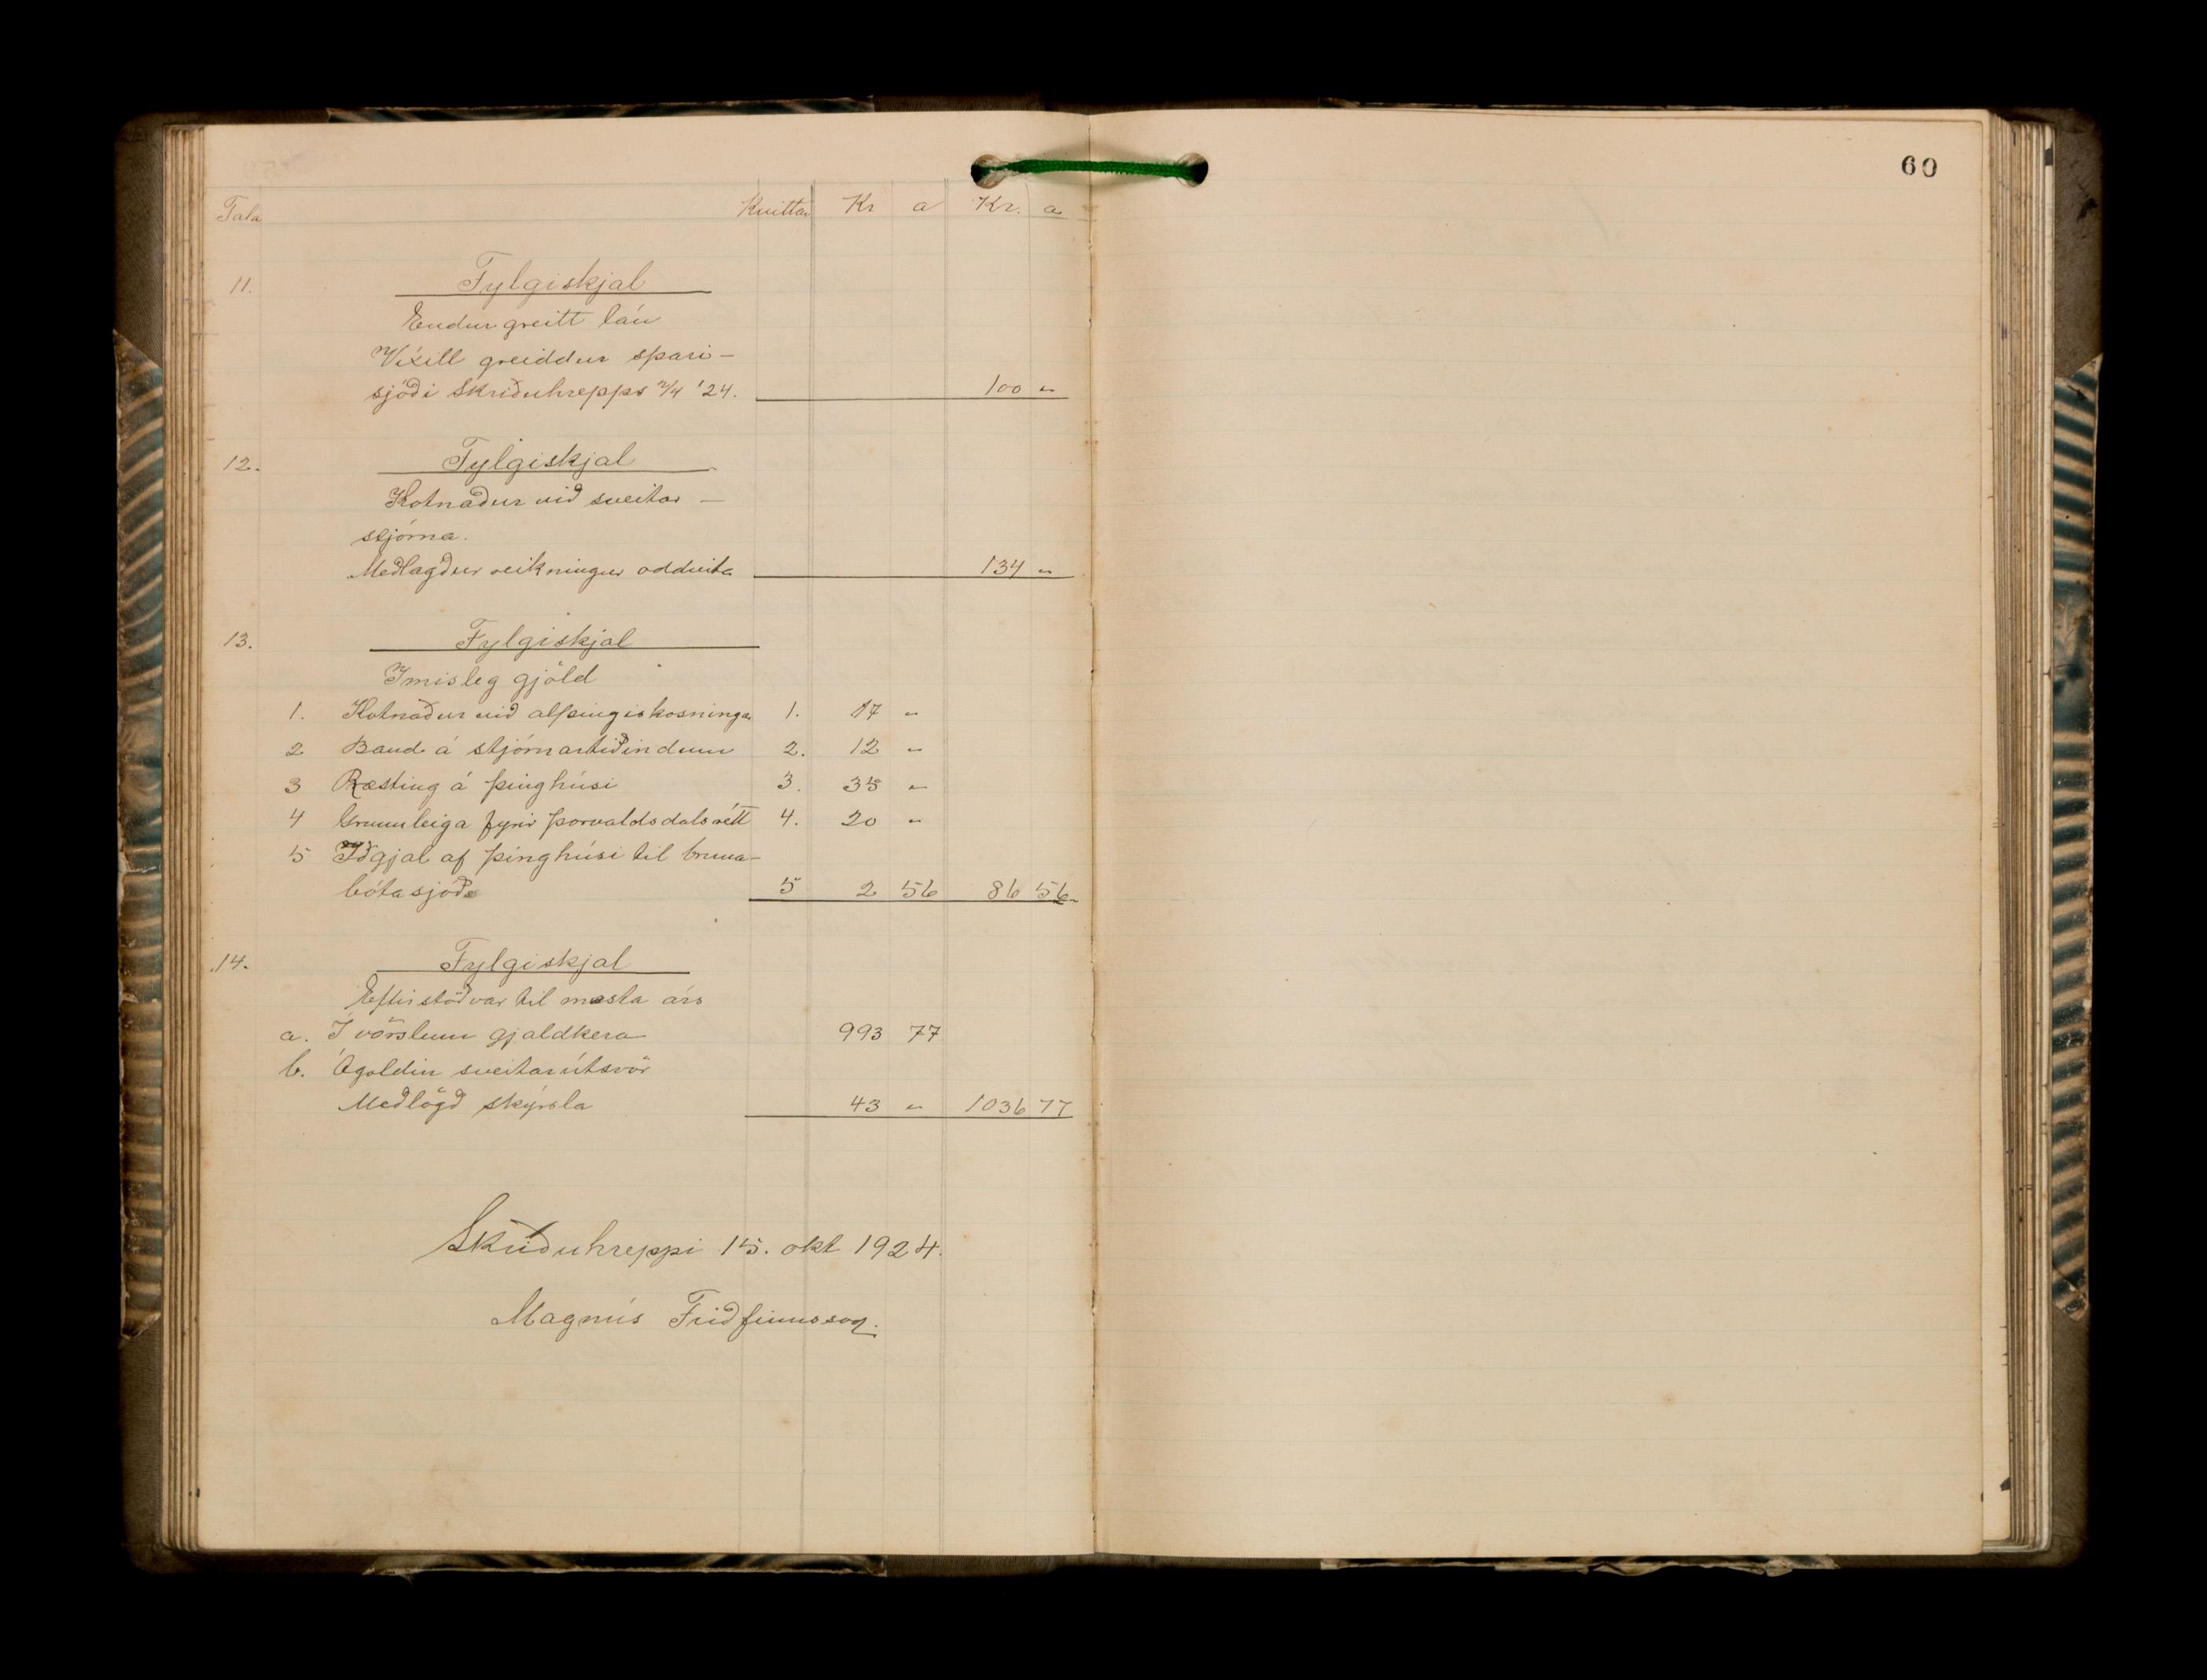 60
Tala Kvittar Kr a Kr. a
11. Fylgiskjal
Endurgreitt lán
Víxill greiddur spari-
sjóði Skriðuhrepps /4 '24. 100 "
12. Fylgiskjal
Kotnaður við sveitar-
stjórna.
Meðlagður reikningur oddvita 134 "
13. Fylgiskjal
Imisleg gjöld
1. Kotnaður við alþingiskosningar 1. 17 "
2 Band á stjórnartiðindum 2. 12 "
3 Ræsting á þinghúsi 3. 35 "
4 Grunnleiga fyrir Þorvaldsdalsrétt 4. 20 "
5 Iðgjal af þinghúsi til bruna-
bótasjóðs 5 2 56 86 56
14. Fylgiskjal
Eftirstöðvar til næsta árs
a. Í vörslum gjaldkera 993 77
b. Ógoldin sveitarútsvör
Meðlögð skýrsla 43 " 1036 77
Skriðuhreppi 15. okt 1924.
Magnús Friðfinnsson.